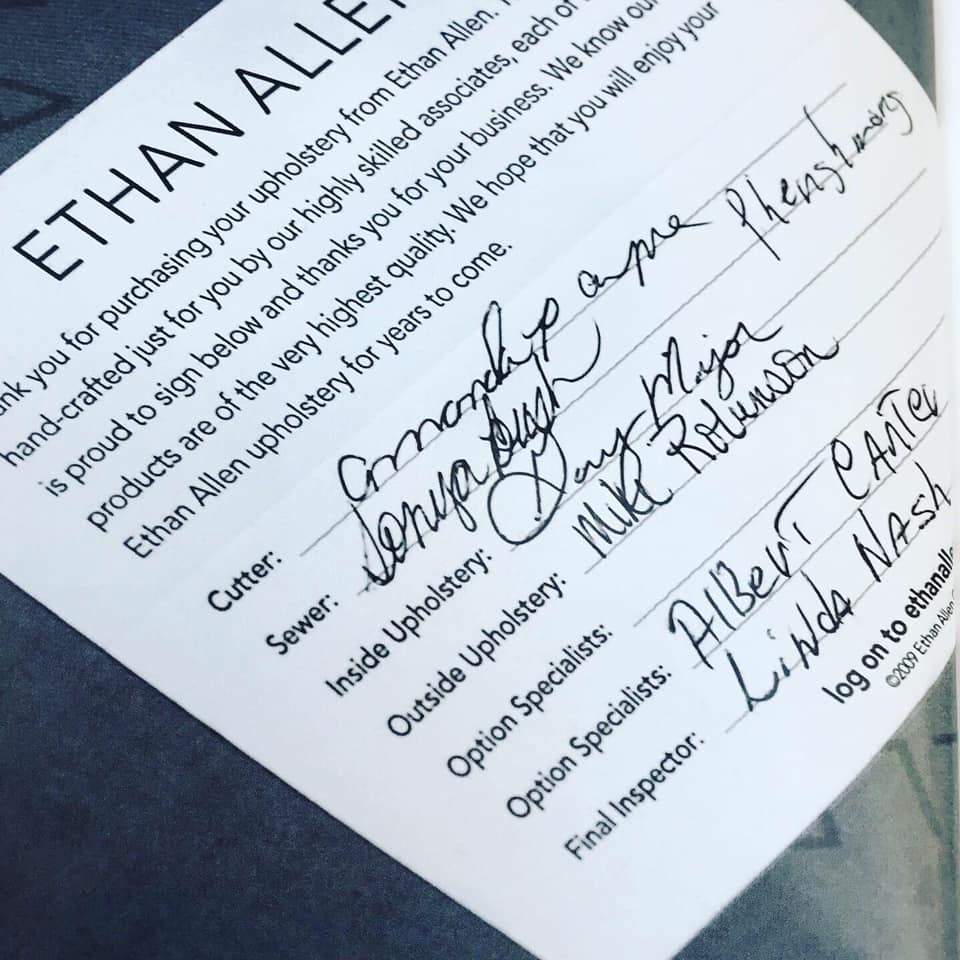 ETHAN ALLEN
ank you for purchasing your upholstery from Ethan Allen. T
hand-crafted just for you by our highly skilled associates, each of
is proud to sign below and thanks you for your business. We know our
products are of the very highest quality. We hope that you will enjoy your
Ethan Allen upholstery for years to come.
Cutter: amanda P
Sewer: Sonya Bush
Inside Upholstery: Doug Major
Outside Upholstery: Mike Robinson
Option Specialists:
Option Specialists: AlBerT
Final Inspector: LiNdA NAsh
log on to ethanalle
©2009 Ethan Allen